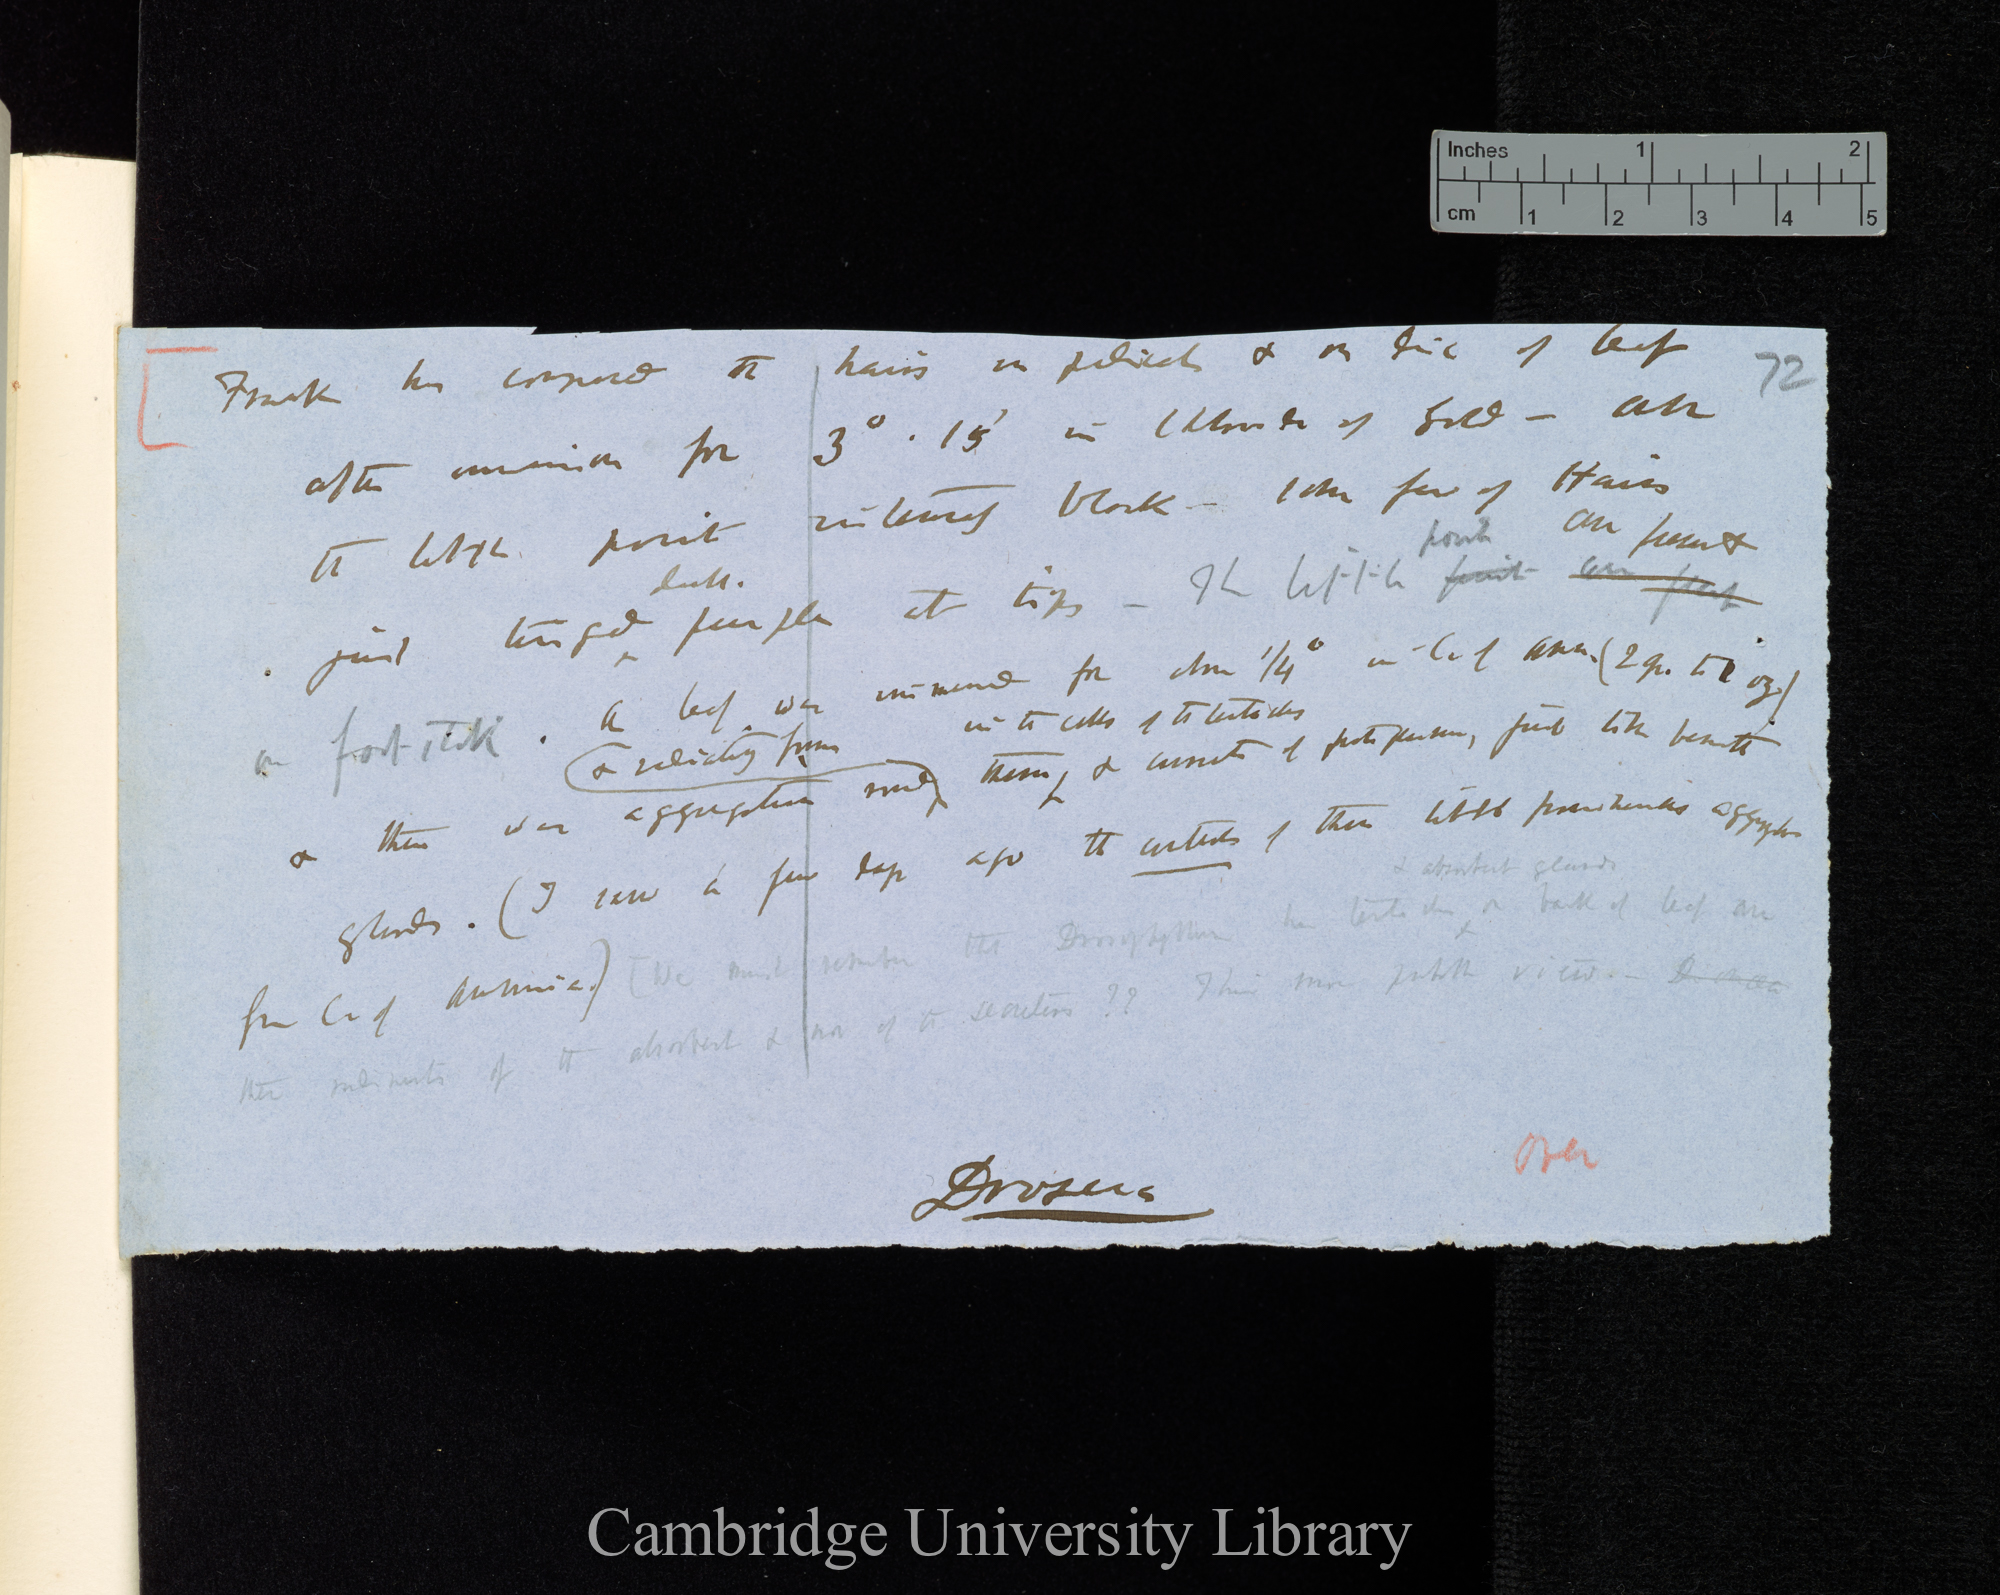 Inches 1 2
cm 1 2 3 4 5
72
Frank has compared the hairs on pedicels & on disc of leaf
after immersion for 3° . 15' in Chloride of Gold — all
the little points intensely black — some few of Hairs
dull. points are present
just tinged purple at tips — The little points
on foot-stalk . A leaf was immersed for about 1/4° in C. of Amm. (2 gr. to 1 oz)
& radiating from in the cells of the tentacles
& there was aggregation round them, & currents of protoplasm, just like beneath
glands . (I saw a few days ago the contents of these little prominences aggregated
& absorbent glands
from C. of Ammonia.) (We must remember that Drosophyllum has tentacles on back of leaf are
these rudiments of the absorbent & not of the secretions ?? This more probable view. —
Over
Drosera
Cambridge University Library